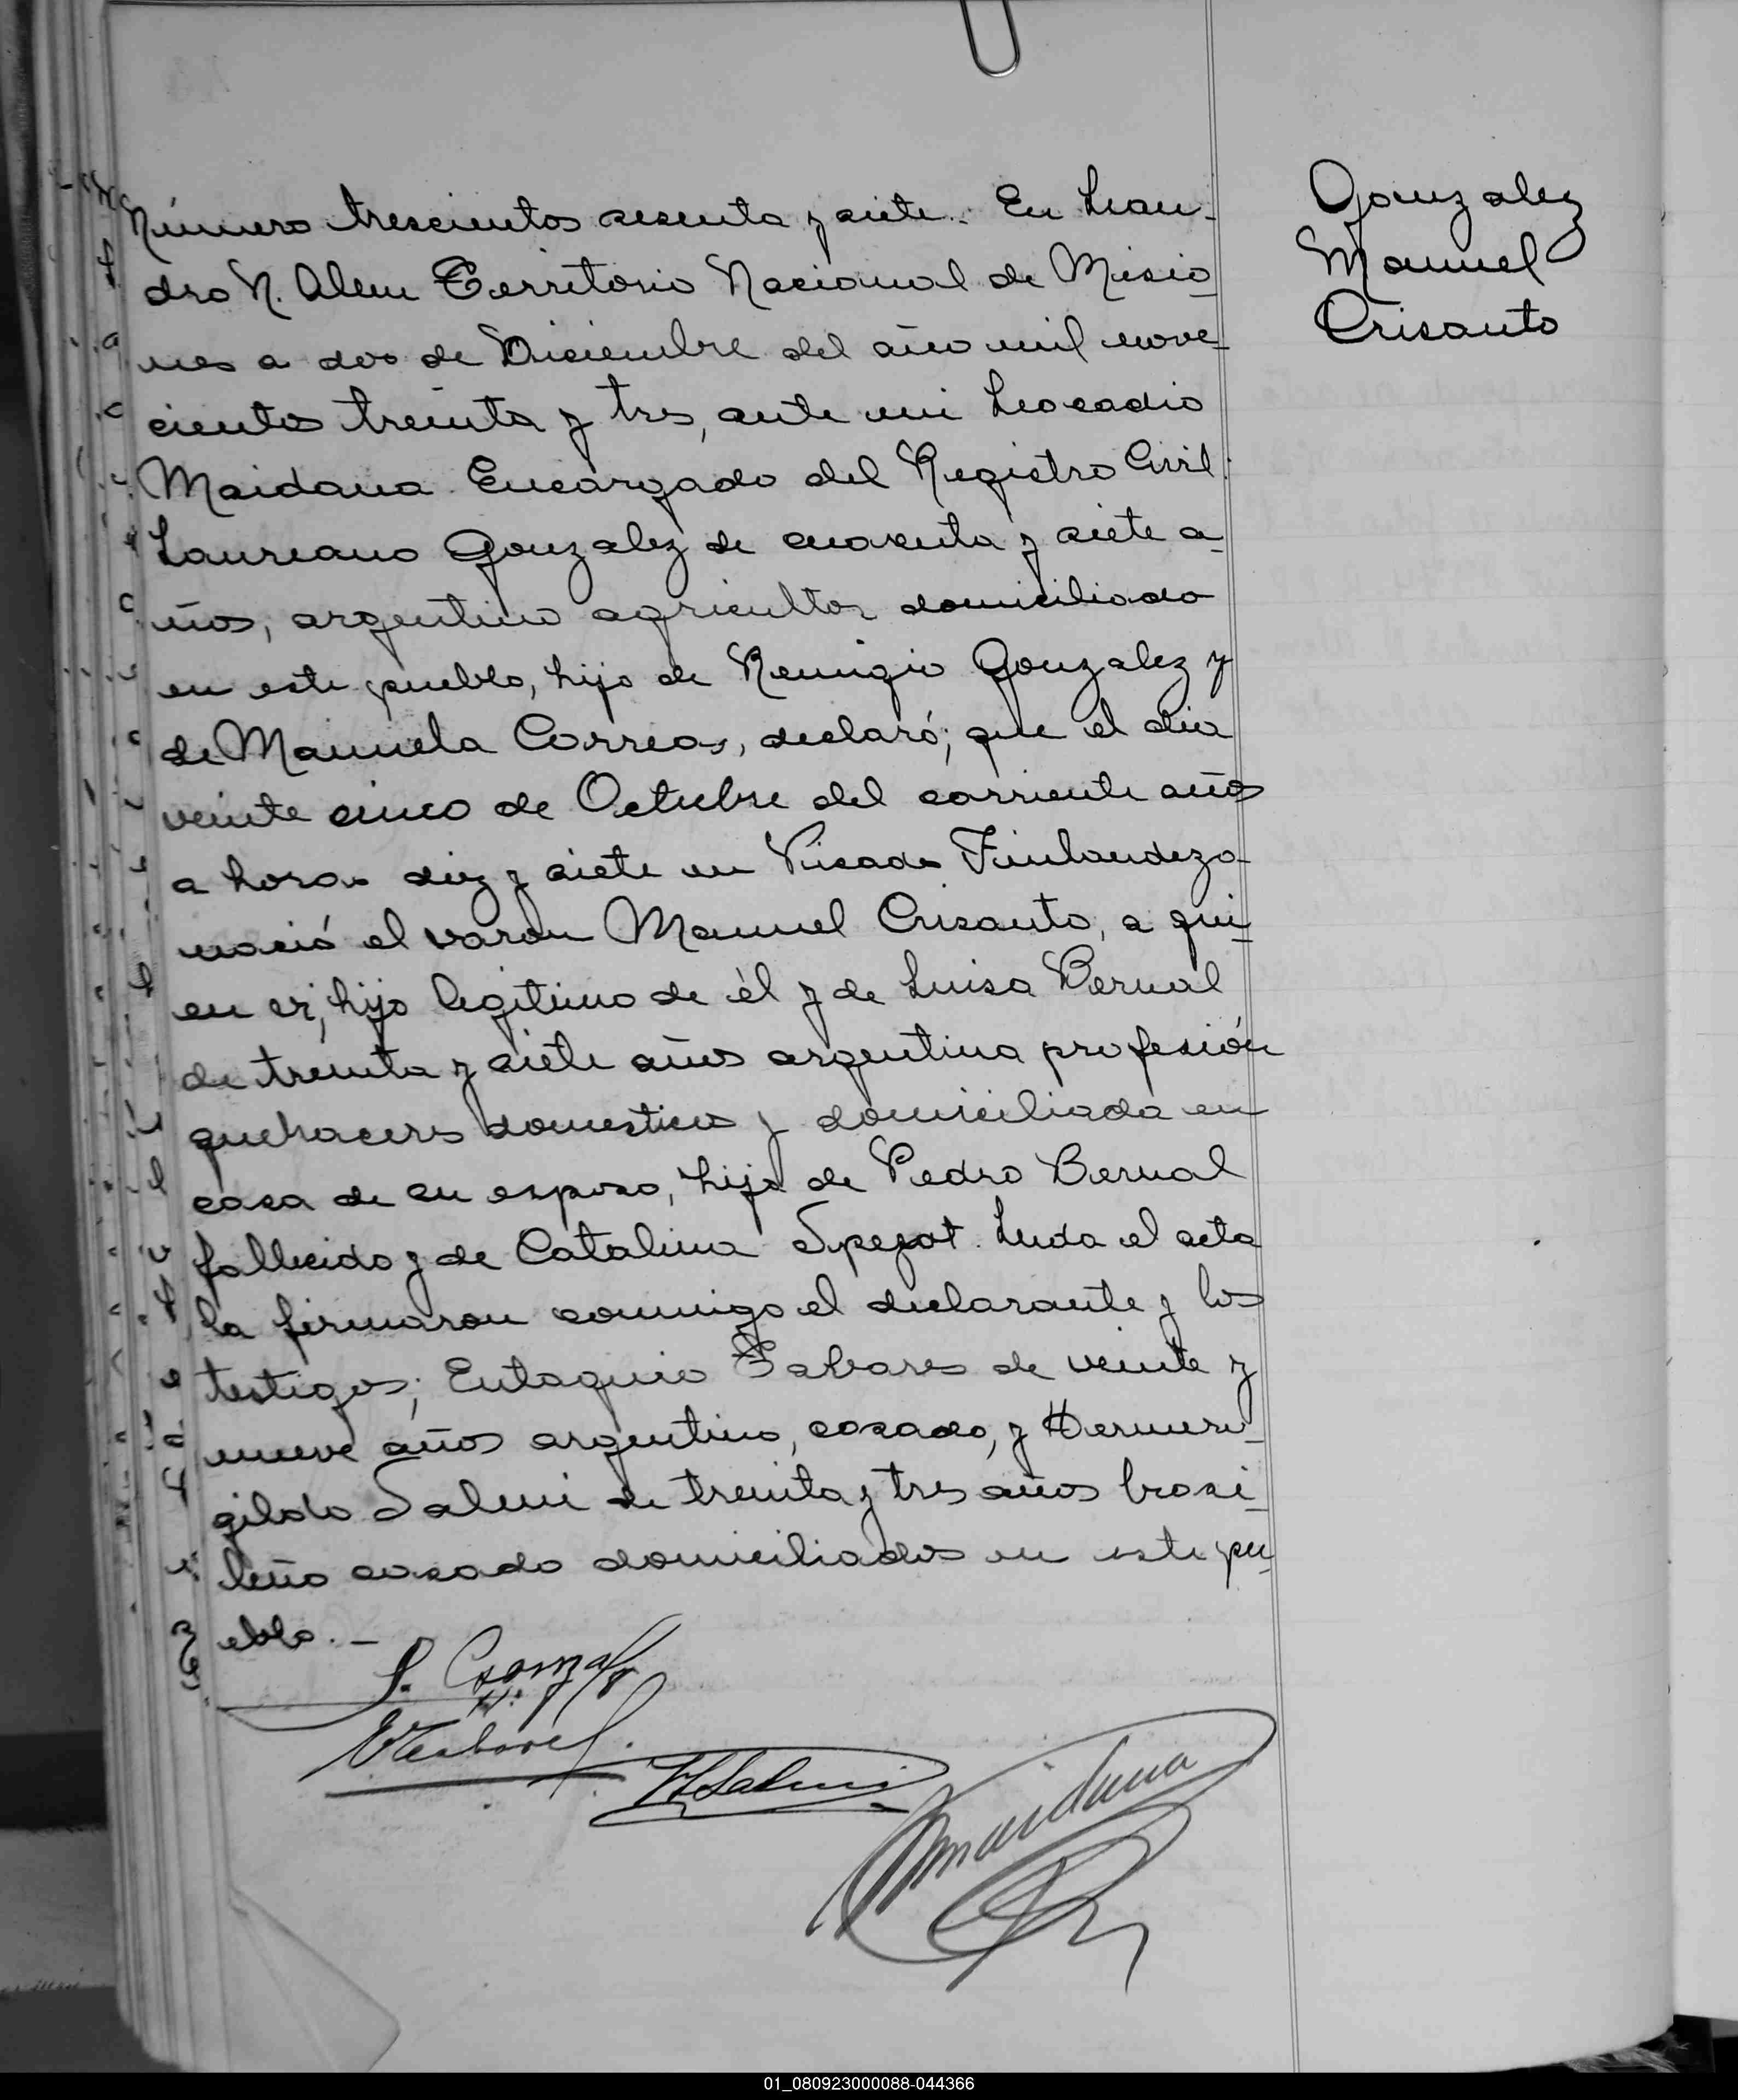 Gonzalez
Manuel
Crisanto
Número trescientos sesenta y siete.. En Lean-
dro N. Alem Territorio Nacional de Misio-
nes a dos de Diciembre del año mil nove-
cientos treinta y tres, ante mi Leocadio
Maidana Encargado del Registro Civil:
Laureano Gonzalez de cuarenta y siete a-
ños, argentino agricultor domiciliado
en este pueblo, hijo de Remigio Gonzalez y
de Manuela Correa, declaró; que el dia
veinte cinco de Octubre del corriente año
a horas diez y siete en Picada Finlandeza
nació el varon Manuel Crisanto, a qui-
en es, hijo legitimo de él y de Luisa Bernal
de treinta y siete años argentina profesión
quehaceres domesticos y domiciliada en
casa de su esposo, hija de Pedro Bernal
fallecido y de Catalina Leida el acta
la firmaron conmigo el declarante y los
testigos; Eutaquio Tabares de veinte y
nueve años argentino, casado, y Hermeni-
gildo Salmi de treinta y tres años brasi-
leño casado domiciliados en este pu-
eblo. —
L. Gonzalez
H. Salmi
Maidana
01_080923000088-044366